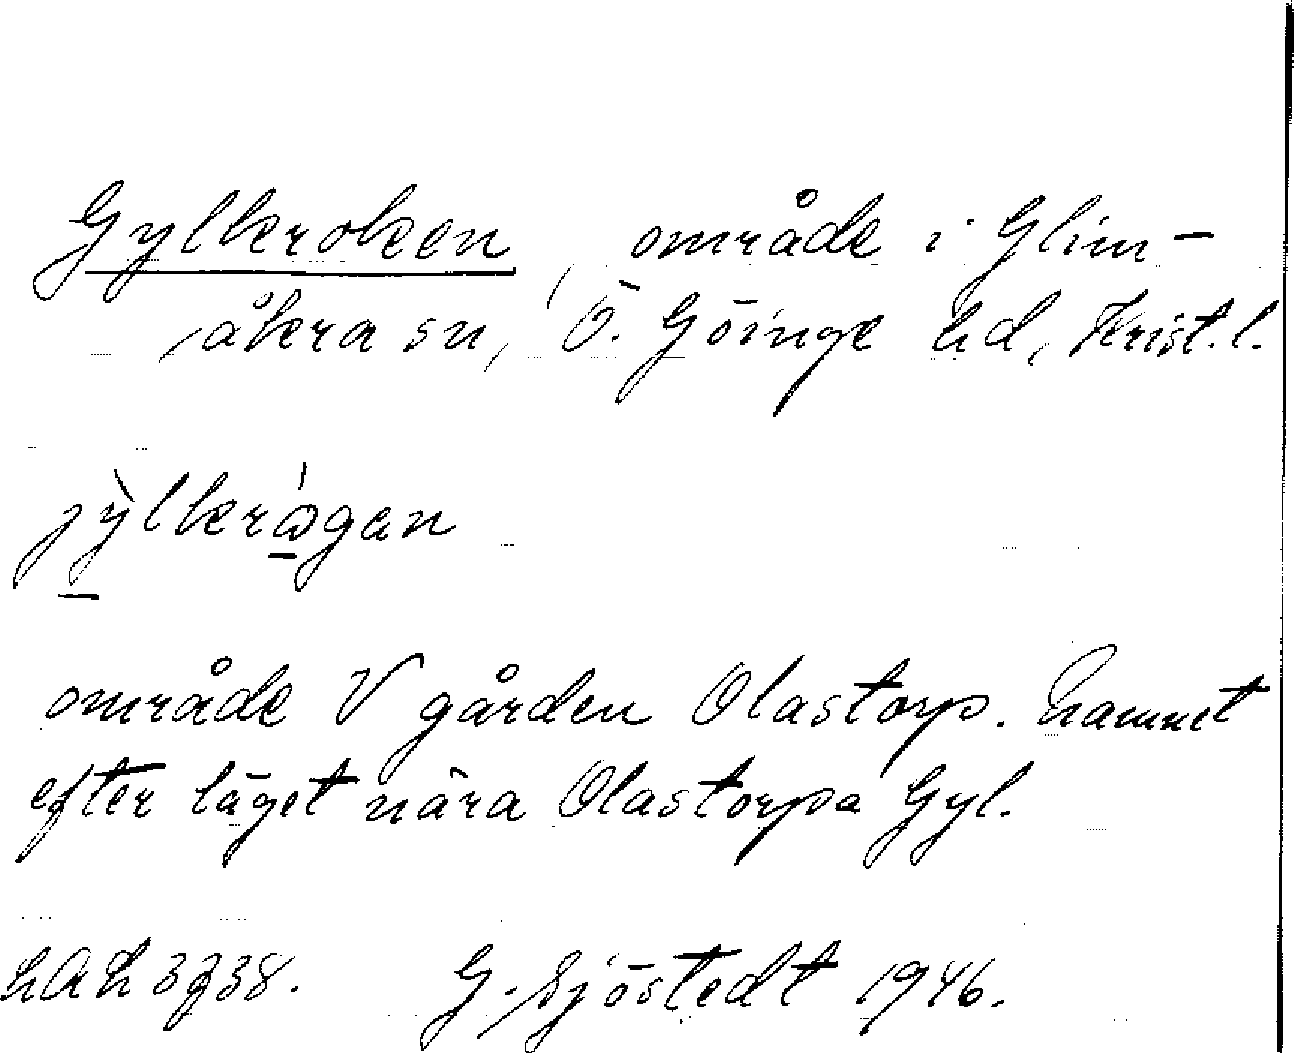 Gylkroken, område i Glim-
åkra sn, Ö. Göinge hd, Krist.l.
jỳlkrɷ́gan
område V gården Olastorp. Namnet
efter läget nära Olastorpa Gyl.
G. Sjöstedt 1946.